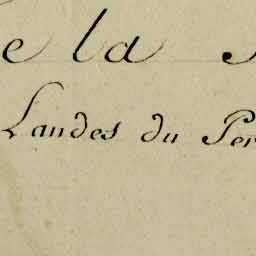 e la
Landes du Per